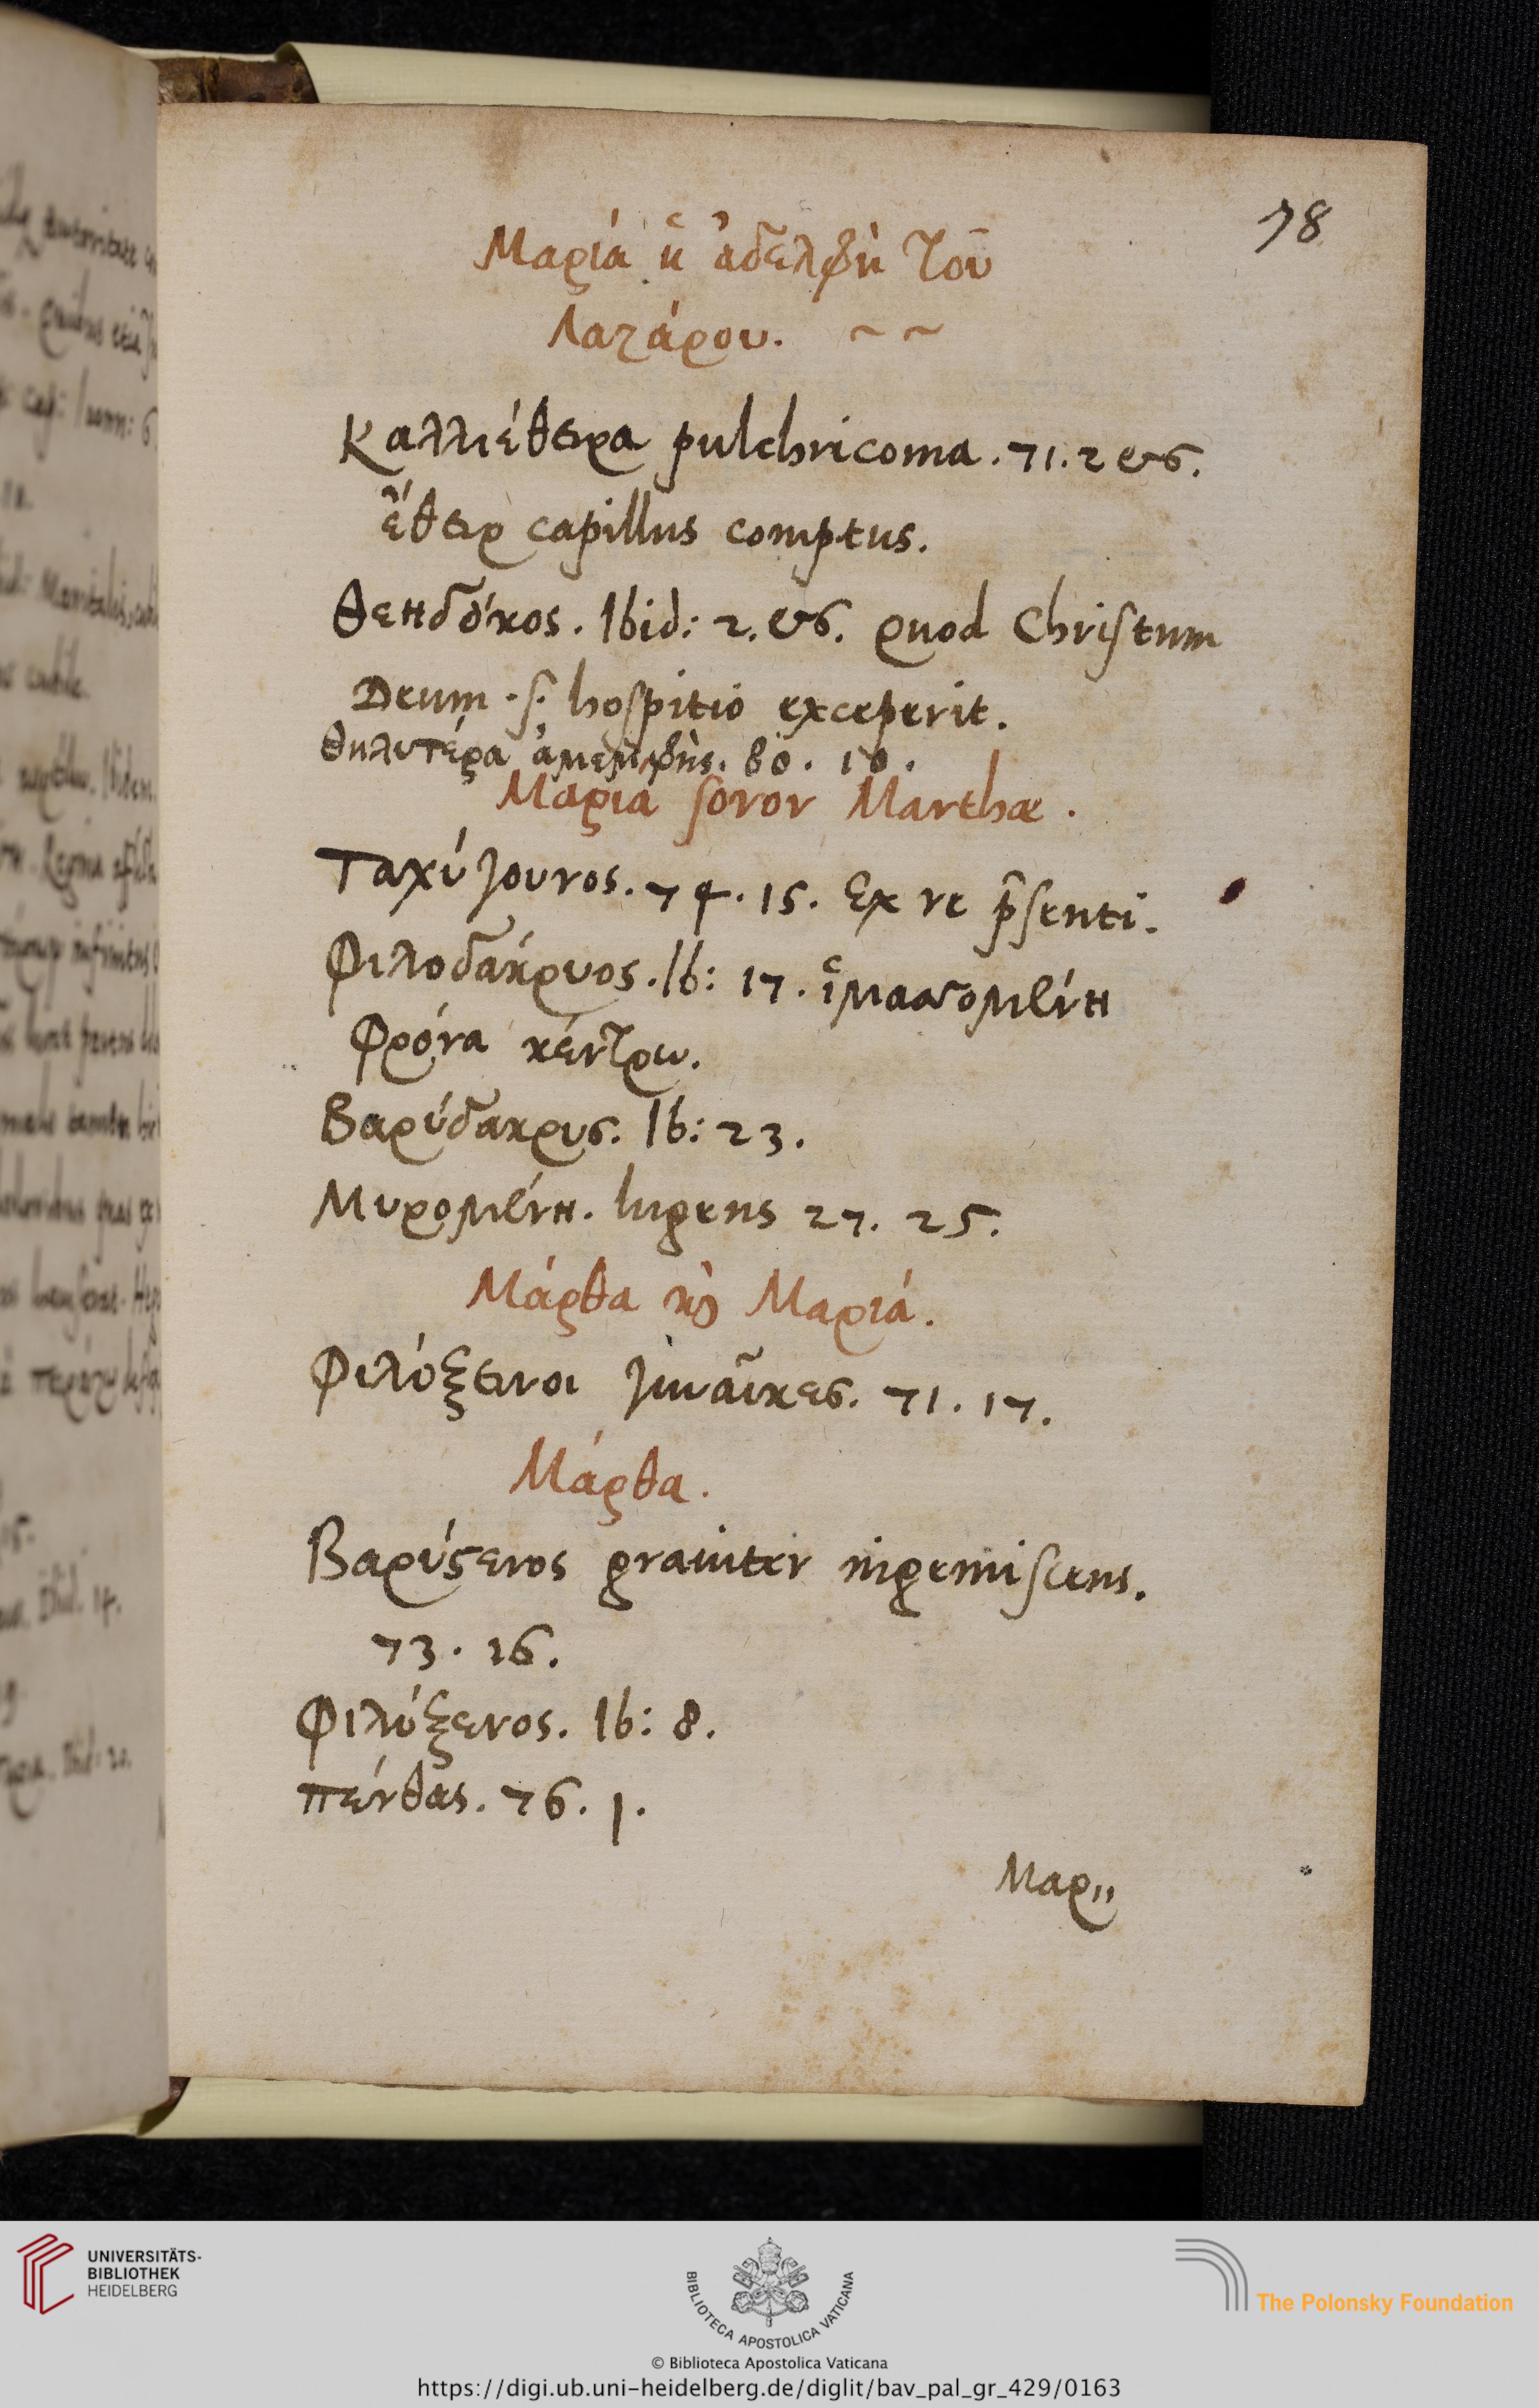 78
Μαρία ἡ ἀδελφὴ τοῦ
Λαζάρου. ~ ~
Καλλιέθειρα pulchricoma. 71. 2 & 6.
ἔθειρ capillus comptus.
Θεηδόκος. Ibid: 2. & 6. quod Christum
Deum .s. hospitio exceperit.
θηλυτέρα ἀμεμφής. 80. 10.
Μαρία soror Marthæ.
Ταχύγουνος. 74. 15. Ex re p̄senti.
Φιλοδάκρυος. Ib: 17. ἱμασσομένη
Φρένα κέντρω.
Βαρύδακρυς. Ib: 23.
Μυρομένη. lugens 27. 25.
Μάρθα καὶ Μαριά.
Φιλόξεινοι γυναῖκες. 71. 17.
Μάρθα.
Βαρύστενος grauiter ingemiscens.
73. 16.
Φιλόξενος. Ib: 8.
πένθας. 76. 1.
Μαρ,,
UNIVERSITÄTS-
BIBLIOTHEK
HEIDELBERG
BIBLIOTECA APOSTOLICA VATICANA
The Polonsky Foundation
© Biblioteca Apostolica Vaticana
https://digi.ub.uni-heidelberg.de/diglit/bav_pal_gr_429/0163